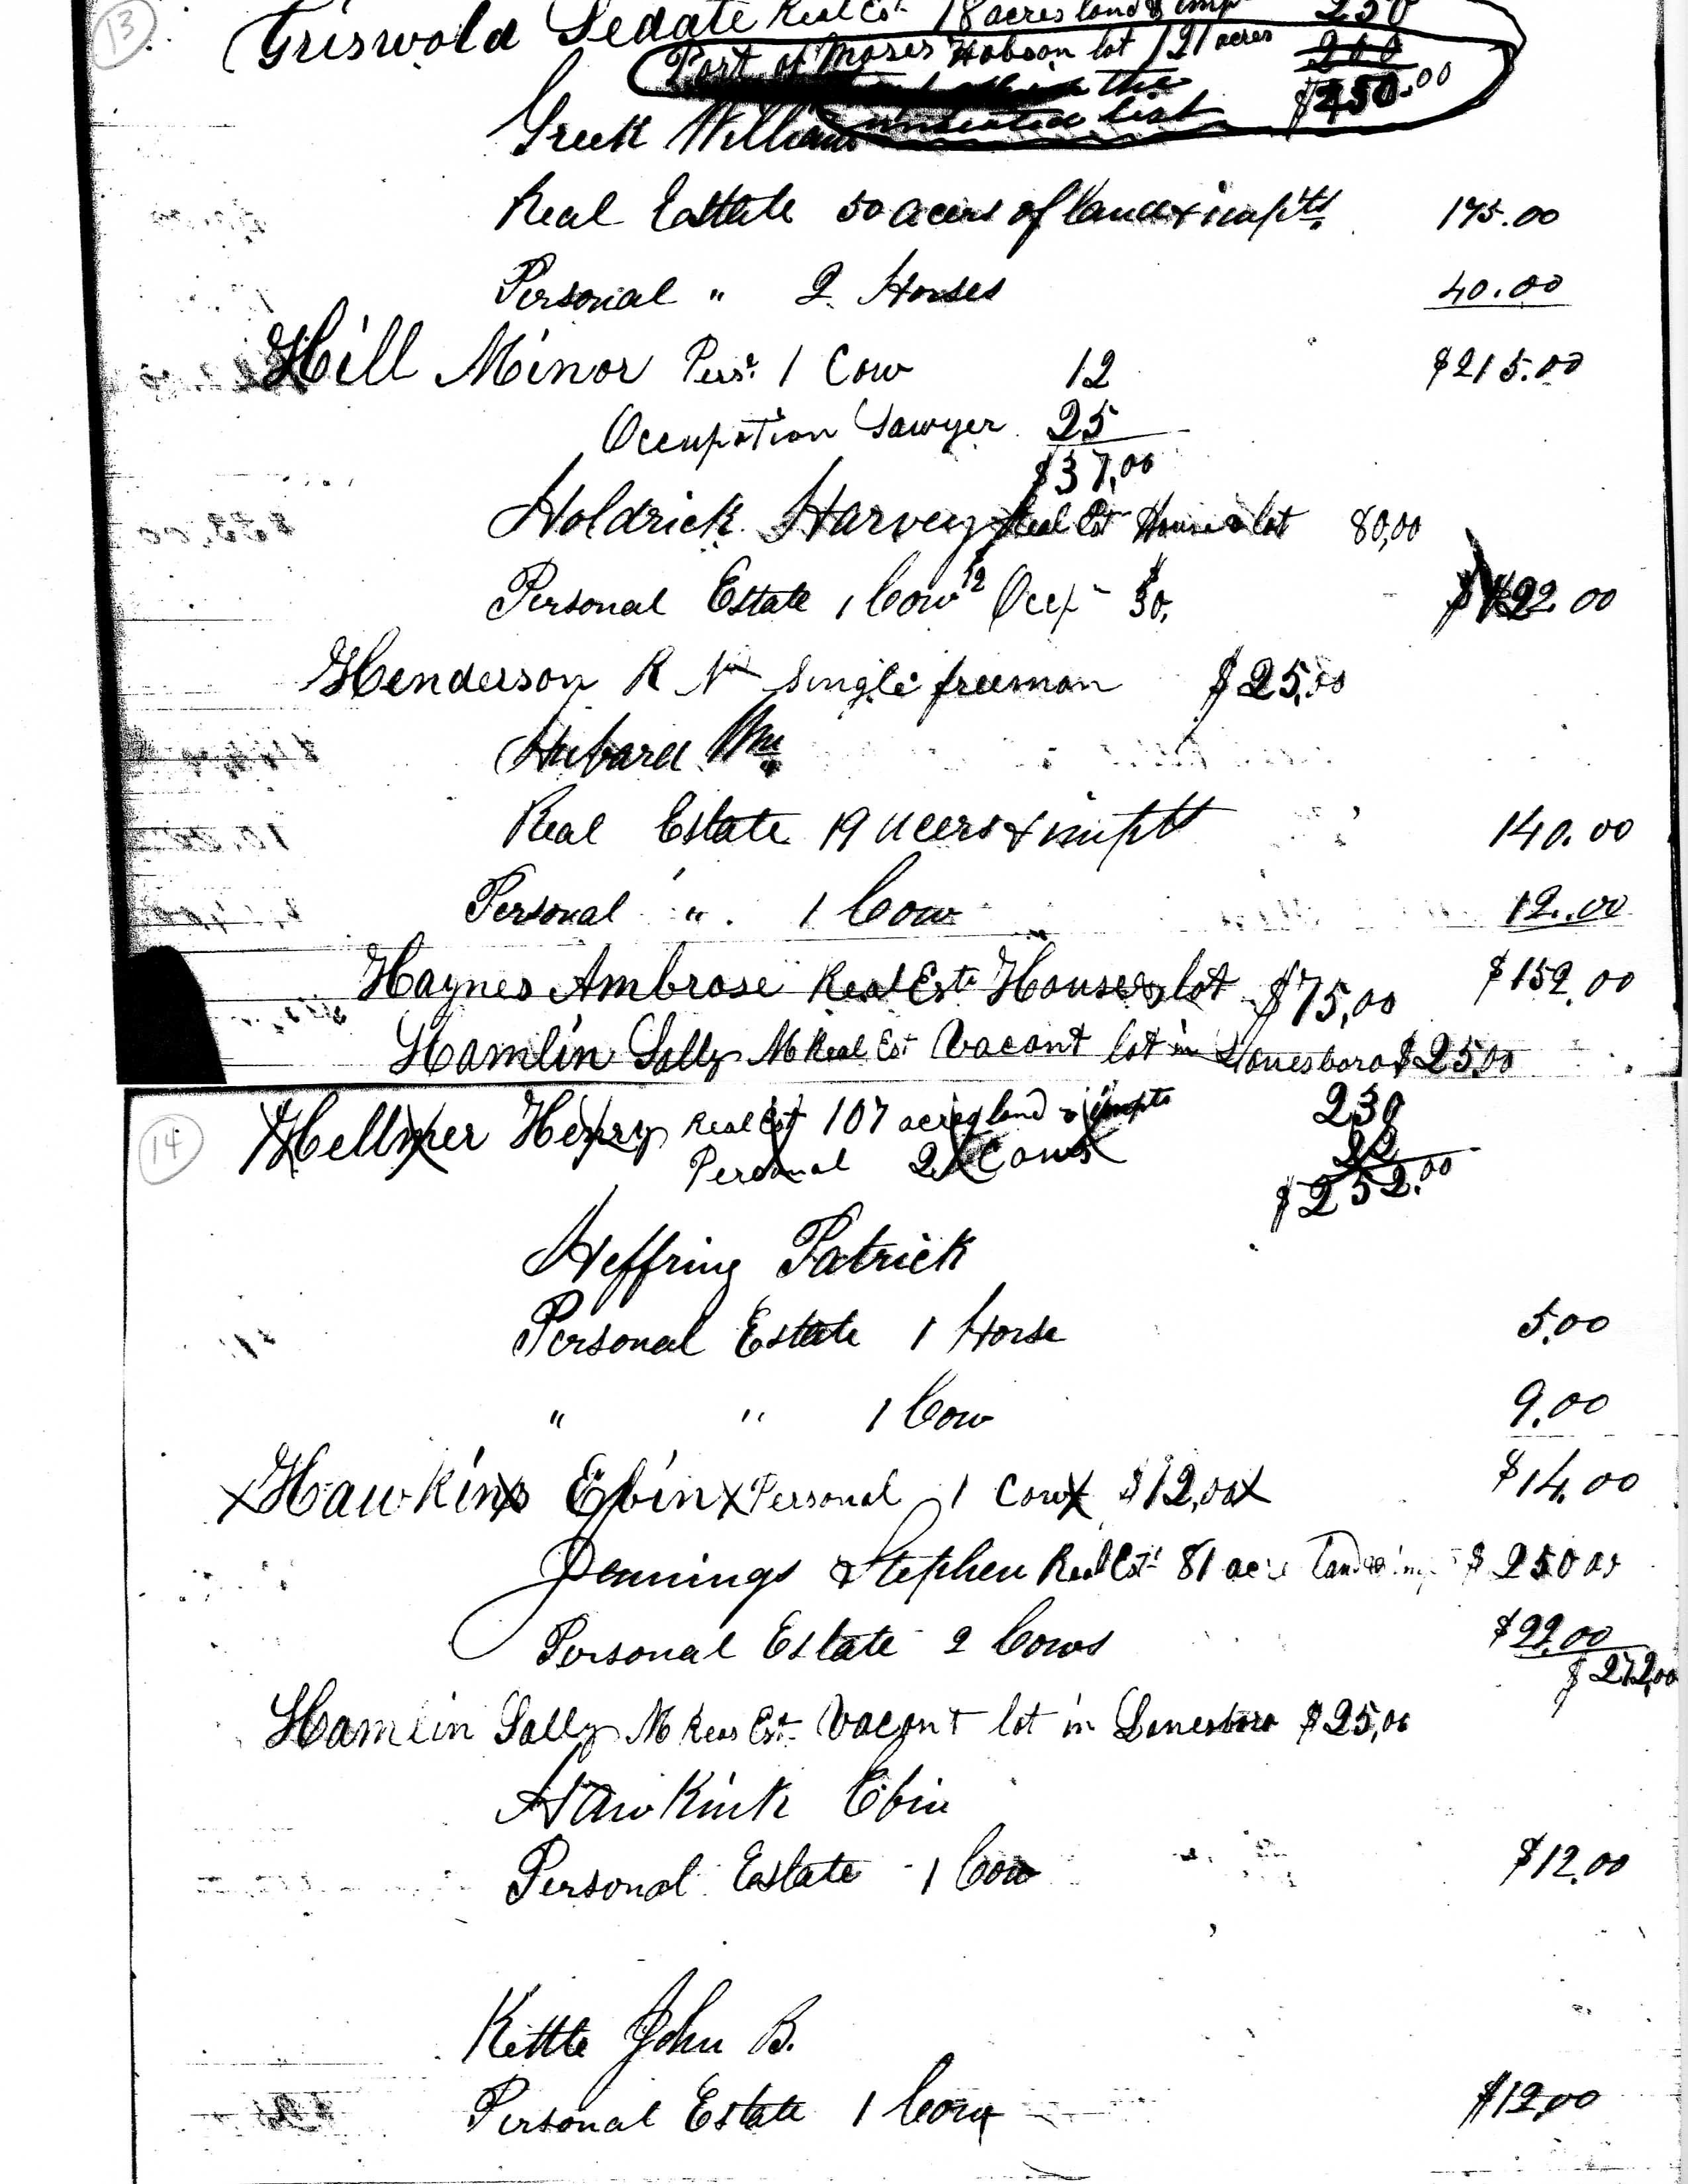 13
Griswold Sedate Real Est 18 acres land & imp 250
Part of Moses Hobson lot 121 acres 200
the $450.00
unseated list
Greek William
Real Estate 50 acers of land & impts 175.00
Personal " 2 Horses 40.00
Hill Minor Pers. 1 Cow 12 $215.00
Occupation Sawyer 25
$37,00
Holdrick Harvey Real Est House & lot 80,00
Personal Estate 1 Cow 12 Occp 30. 22.00
Henderson R N Single freeman $25,00
Hubard Wm
Real Estate 19 acers & impts 140.00
Personal " 1 Cow 12.00
Haynes Ambrose Real Est House & lot $75,00 $152.00
Hamlin Sally M Real Est Vacant lot in Lanesboro $25,00
14
Hellmer Henry Real Est 107 acres land & impts 230
Personal 2 Cows 22
$252.00
Heffring Patrick
Personal Estate 1 Horse 5.00
" " 1 Cow 9.00
Hawkins Ebin Personal 1 Cow $12,00 $14.00
Jennings Stephen Real Est 81 acre land & imp $250 00
Personal Estate 2 Cows $22.00
$272,00
Hamlin Sally M Real Est Vacant lot in Lanesboro $25,00
Hawkink Ebin
Personal Estate 1 Cow $12.00
Kettle John B.
Personal Estate 1 Cow $12,00